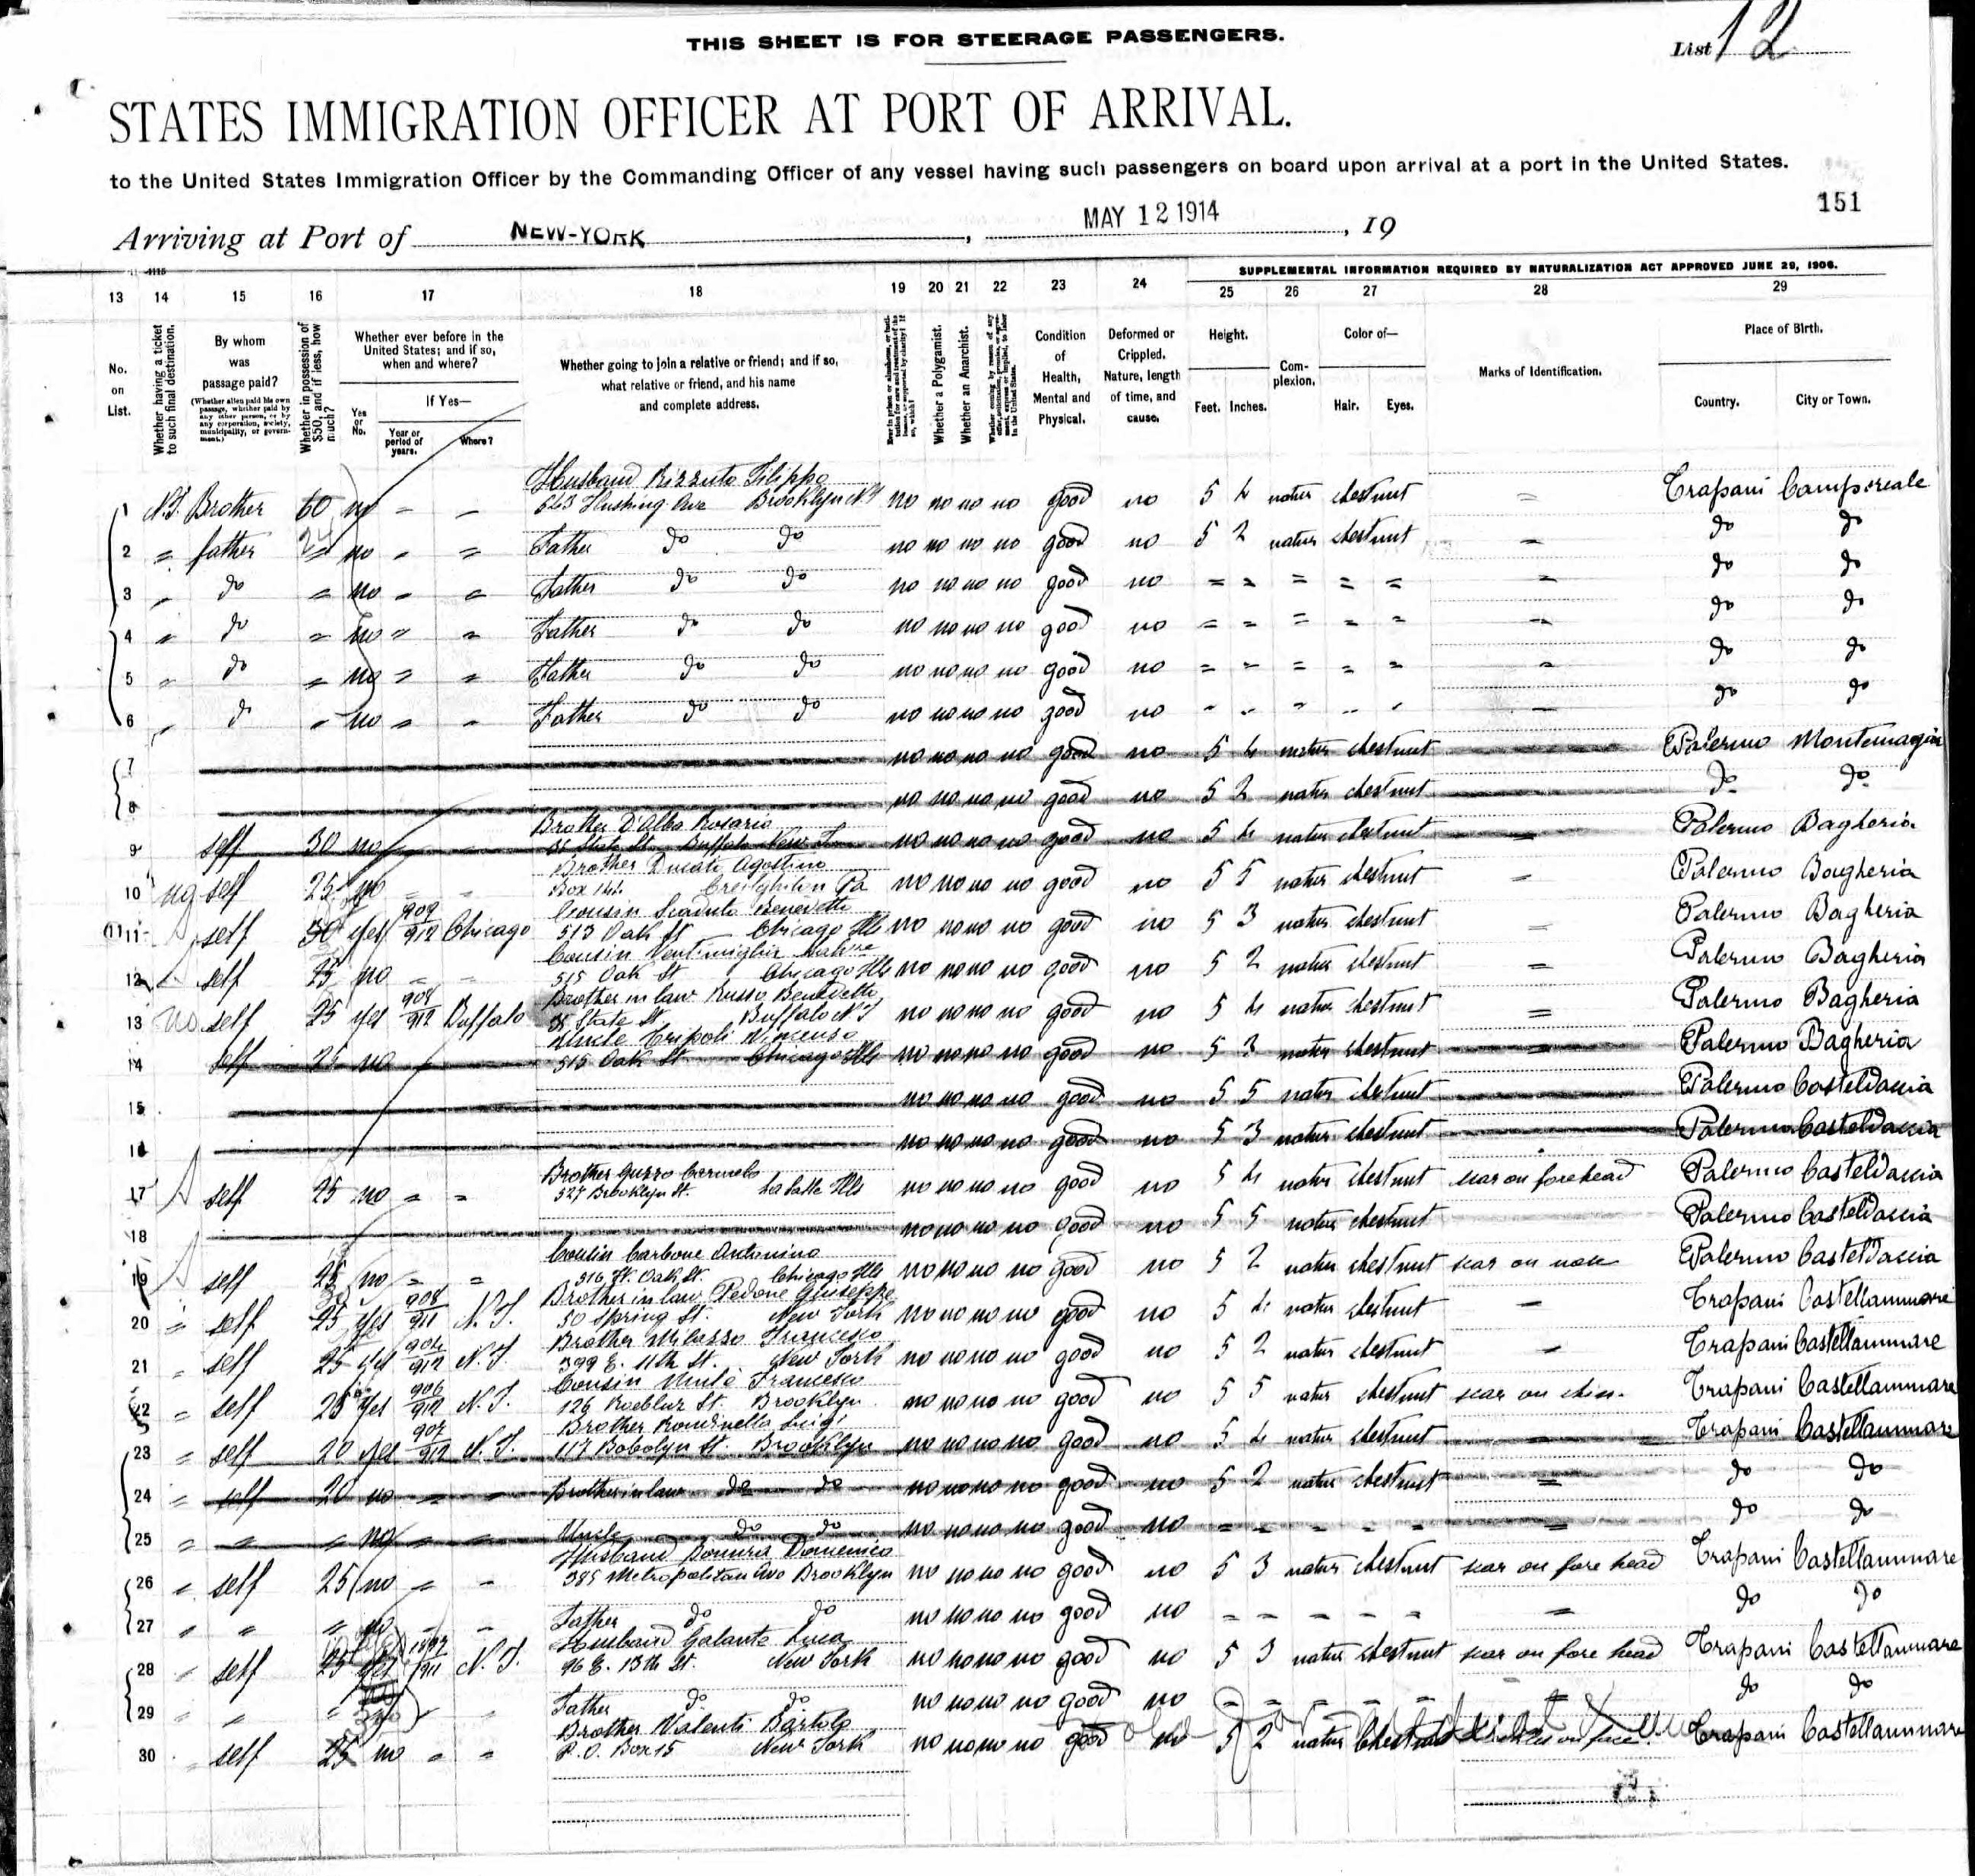 THIS SHEET IS FOR STEERAGE PASSENGERS.
List 12
STATES IMMIGRATION OFFICER AT PORT OF ARRIVAL.
to the United States Immigration Officer by the Commanding Officer of any vessel having such passengers on board upon arrival at a port in the United States.
151
Arriving at Port of NEW-YORK, MAY 12 1914, 19
SUPPLEMENTAL INFORMATION REQUIRED BY NATURALIZATION ACT APPROVED JUNE 29, 1906.
13 14 15 16 17 18 19 20 21 22 23 24 25 26 27 28 29
No. on List.
Whether having a ticket to such final destination.
By whom was passage paid?
(Whether alien paid his own passage, whether paid by any other person, or by any corporation, society, municipality, or government.)
Whether in possession of $50, and if less, how much?
Whether ever before in the United States; and if so, when and where?
Yes or No.
If Yes—
Year or period of years.
Where?
Whether going to join a relative or friend; and if so, what relative or friend, and his name and complete address.
Whether a Polygamist.
Whether an Anarchist.
Condition of Health, Mental and Physical.
Deformed or Crippled. Nature, length of time, and cause.
Height.
Feet. Inches.
Complexion.
Color of—
Hair. Eyes.
Marks of Identification.
Place of Birth.
Country. City or Town.
Husband Rizzuto Filippo
1 N.Y. Brother 60 no - - 663 Flushing Ave Brooklyn N.Y no no no no good no 5 4 natur chestnut = Trapani Camporeale
2 = father = no - = Father do do no no no no good no 5 2 natur chestnut = do do
3 = do = no - = Father do do no no no no good no = = = = = = do do
4 = do = no = = Father do do no no no no good no = = = = = = do do
5 = do = no = = Father do do no no no no good no = = = = = = do do
6 = do = no = = Father do do no no no no good no " " " " " = do do
7 no no no no good no 5 4 natur chestnut Palermo
8 no no no no good no 5 2 natur chestnut do do
Brother D'Alba Rosario
9 self 30 no 35 State St. Buffalo New no no no no good no 5 4 natur chestnut = Palermo Bagheria
Brother Ducati Agostino
10 self 25 no = = Box 144 Creighton Pa no no no no good no 5 5 natur chestnut = Palermo Bagheria
Cousin Scaduto Benedetto
11 self 50 yes 909 912 Chicago 513 Oak St Chicago Ills no no no no good no 5 3 natur chestnut = Palermo Bagheria
Cousin Ventimiglia
12 self 25 no = = 515 Oak St Chicago Ills no no no no good no 5 2 natur chestnut = Palermo Bagheria
Brother in law Russo Benedetto
13 no self 25 yes 908 912 Buffalo 35 State St Buffalo N.Y no no no no good no 5 4 natur chestnut = Palermo Bagheria
Uncle Tripoli Vincenzo
14 self 25 no 515 Oak St Chicago Ills no no no no good no 5 3 natur chestnut Palermo Bagheria
15 no no no no good no 5 5 natur chestnut Palermo Casteldaccia
16 no no no no good no 5 3 natur chestnut Palermo Casteldaccia
Brother Guzzo Carmelo
17 self 25 no = = 527 Brooklyn St. La Salle Ills no no no no good no 5 4 natur chestnut scar on forehead Palermo Casteldaccia
18 no no no no good no 5 5 natur chestnut Palermo Casteldaccia
Cousin Carbone Antonino
19 self 25 no = = 516 W. Oak St. Chicago Ills no no no no good no 5 2 natur chestnut scar on nose Palermo Casteldaccia
Brother in law Pedone Giuseppe
20 = self 25 yes 908 911 N.Y. 50 Spring St. New York no no no no good no 5 4 natur chestnut = Trapani Castellammare
Brother Milazzo Francesco
21 = self 25 yes 904 912 N.Y. 399 E. 11th St. New York no no no no good no 5 2 natur chestnut = Trapani Castellammare
Cousin Francesco
22 = self 25 yes 906 912 N.Y. 126 Roebling St. Brooklyn no no no no good no 5 5 natur chestnut scar on chin. Trapani Castellammare
Brother Rondinella Luigi
23 = self 20 yes 907 912 N.Y. 117 St. Brooklyn no no no no good no 5 4 natur chestnut Trapani Castellammare
24 = self 20 no = - Brother in law do do no no no no good no 5 2 natur chestnut = do do
25 = = = no = = Uncle do do no no no no good no = = = = = = do do
Husband Bonura Domenico
26 = self 25 no = - 385 Metropolitan Ave Brooklyn no no no no good no 5 3 natur chestnut scar on fore head Trapani Castellammare
27 " " " no - - Father do do no no no no good no = = = = = = do do
Husband Galante Luca
28 = self 25 yes 1897 1911 N.Y. 96 E. 13th St. New York no no no no good no 5 3 natur chestnut scar on fore head Trapani Castellammare
29 = = = = Father do do no no no no good no = = = = = = do do
Brother Valenti Bartolo
30 = self 25 no = = P.O. Box 15 New York no no no no good no 5 2 natur Chestnut on face Trapani Castellammare